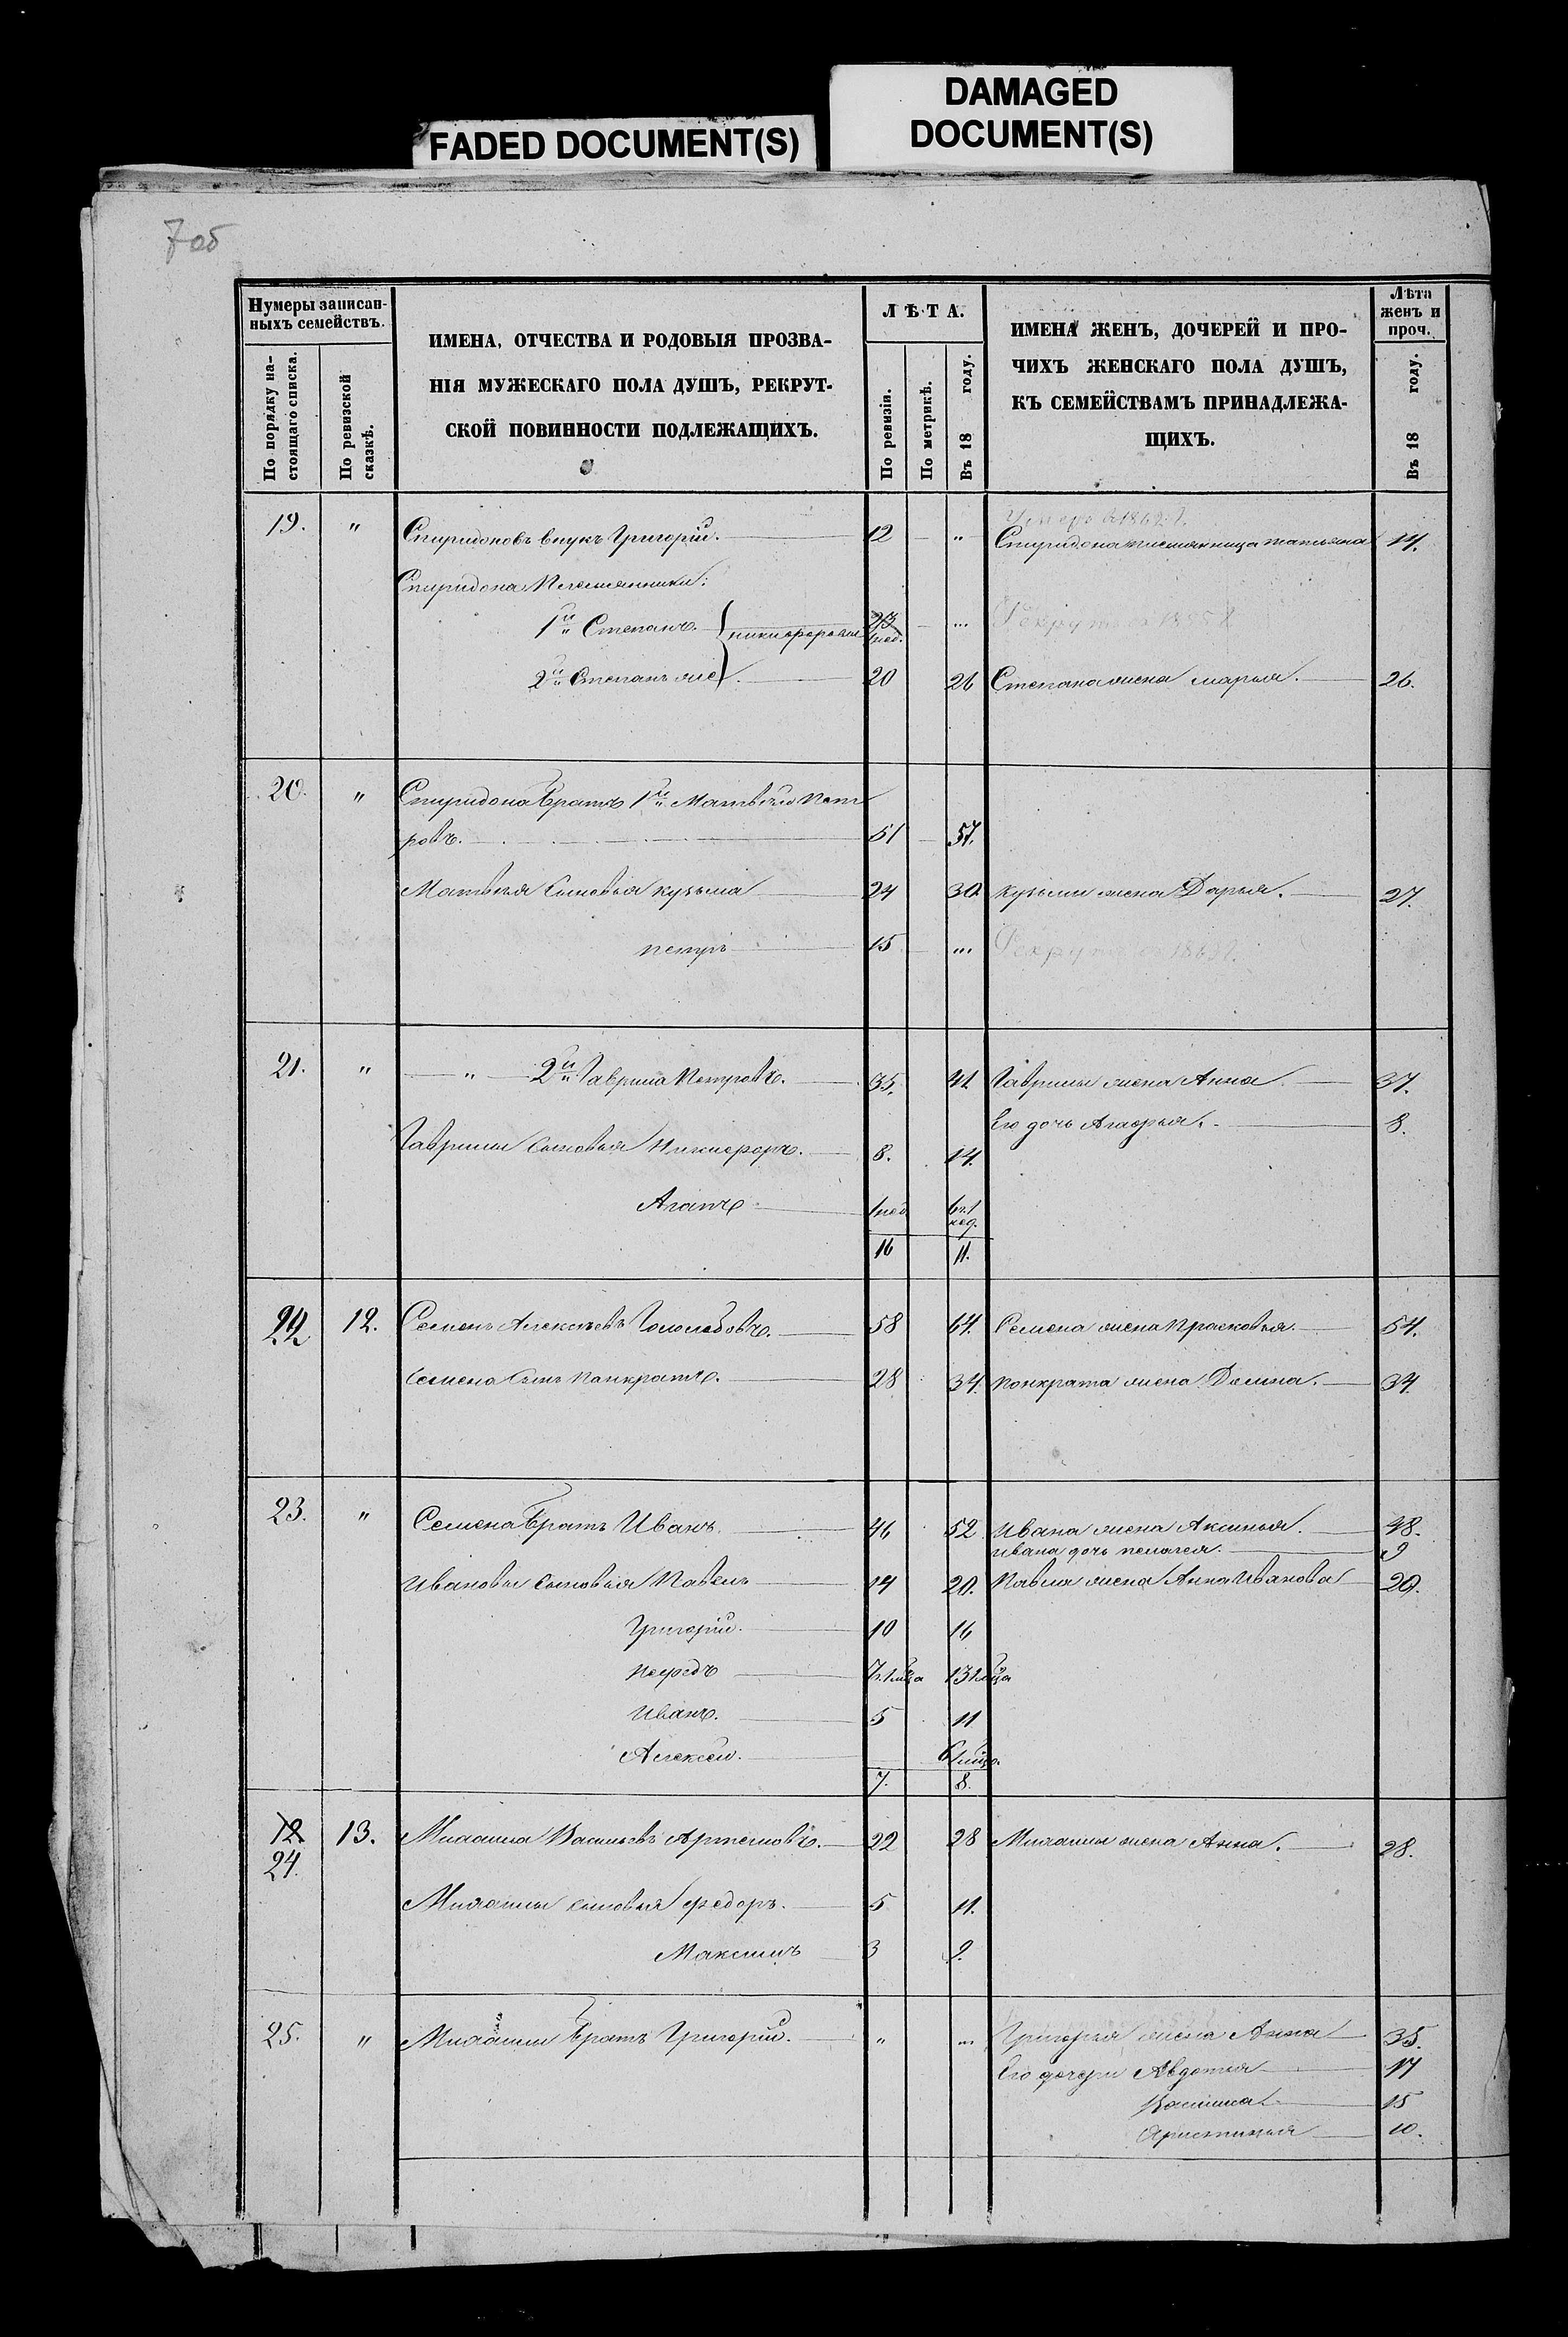 FADED DOCUMENT(S)
DAMAGED
DOCUMENT(S)
7об
Нумеры записан-
ныхъ семействъ.
По порядку на-
стоящаго списка.
По ревизской
сказкѣ.
ИМЕНА, ОТЧЕСТВА И РОДОВЫЯ ПРОЗВА-
НІЯ МУЖЕСКАГО ПОЛА ДУШЪ, РЕКРУТ-
СКОЙ ПОВИННОСТИ ПОДЛЕЖАЩИХЪ.
ЛѢТА.
По ревизіи.
По метрикѣ.
Въ 18 году.
ИМЕНА ЖЕНЪ, ДОЧЕРЕЙ И ПРО-
ЧИХЪ ЖЕНСКАГО ПОЛА ДУШЪ,
КЪ СЕМЕЙСТВАМЪ ПРИНАДЛЕЖА-
ЩИХЪ.
Лѣта
женъ и
проч.
Въ 18 году.
19. " Спиридоновъ внукъ Григорій. 12 " Спиридона племянница татьяна 14.
Спиридона Племянники:
1й Степанъ. никифоровы 23 "'
2й Степанъ же 20 26 Степана жена марья. 26.
20. " Спиридона братъ 1й Матвѣй Пет
ровъ. 51 57.
Матвѣя Сыновья кузьма 24 30. кузьмы жена Дарья. 27.
петръ 15 "'
21. " " 2й Гаврила Петровъ. 35. 41 Гаврилы жена Анна 37.
Его дочь 8.
Гаврилы сыновья Никифоръ. 8. 14.
Агапъ 1нед 6л.1
нед.
16 11.
22 12. Семенъ Алексѣевъ 58 64. Семена жена прасковья. 54.
Семена Сынъ панкратъ. 28 34. понкрата жена Домна. 34
23. " Семена братъ Иванъ. 46 52 Ивана жена Аксинья. 48.
Ивана дочь пелагея. 9
Ивановы сыновья Павелъ 14 20. Павла жена Анна Иванова 20.
Григорій. 10 16
7.
Иванъ. 5 11
Алексей. 6
7. 8.
12 13. Васильевъ Артемовъ. 22 28 жена Анна. 28.
24.
сыновья федоръ. 5 11.
Максимъ 3 9.
25. " братъ Григорій. " "' Григорья жена Анна 35.
Его дочери Авдотья 17
Васился 15
10.